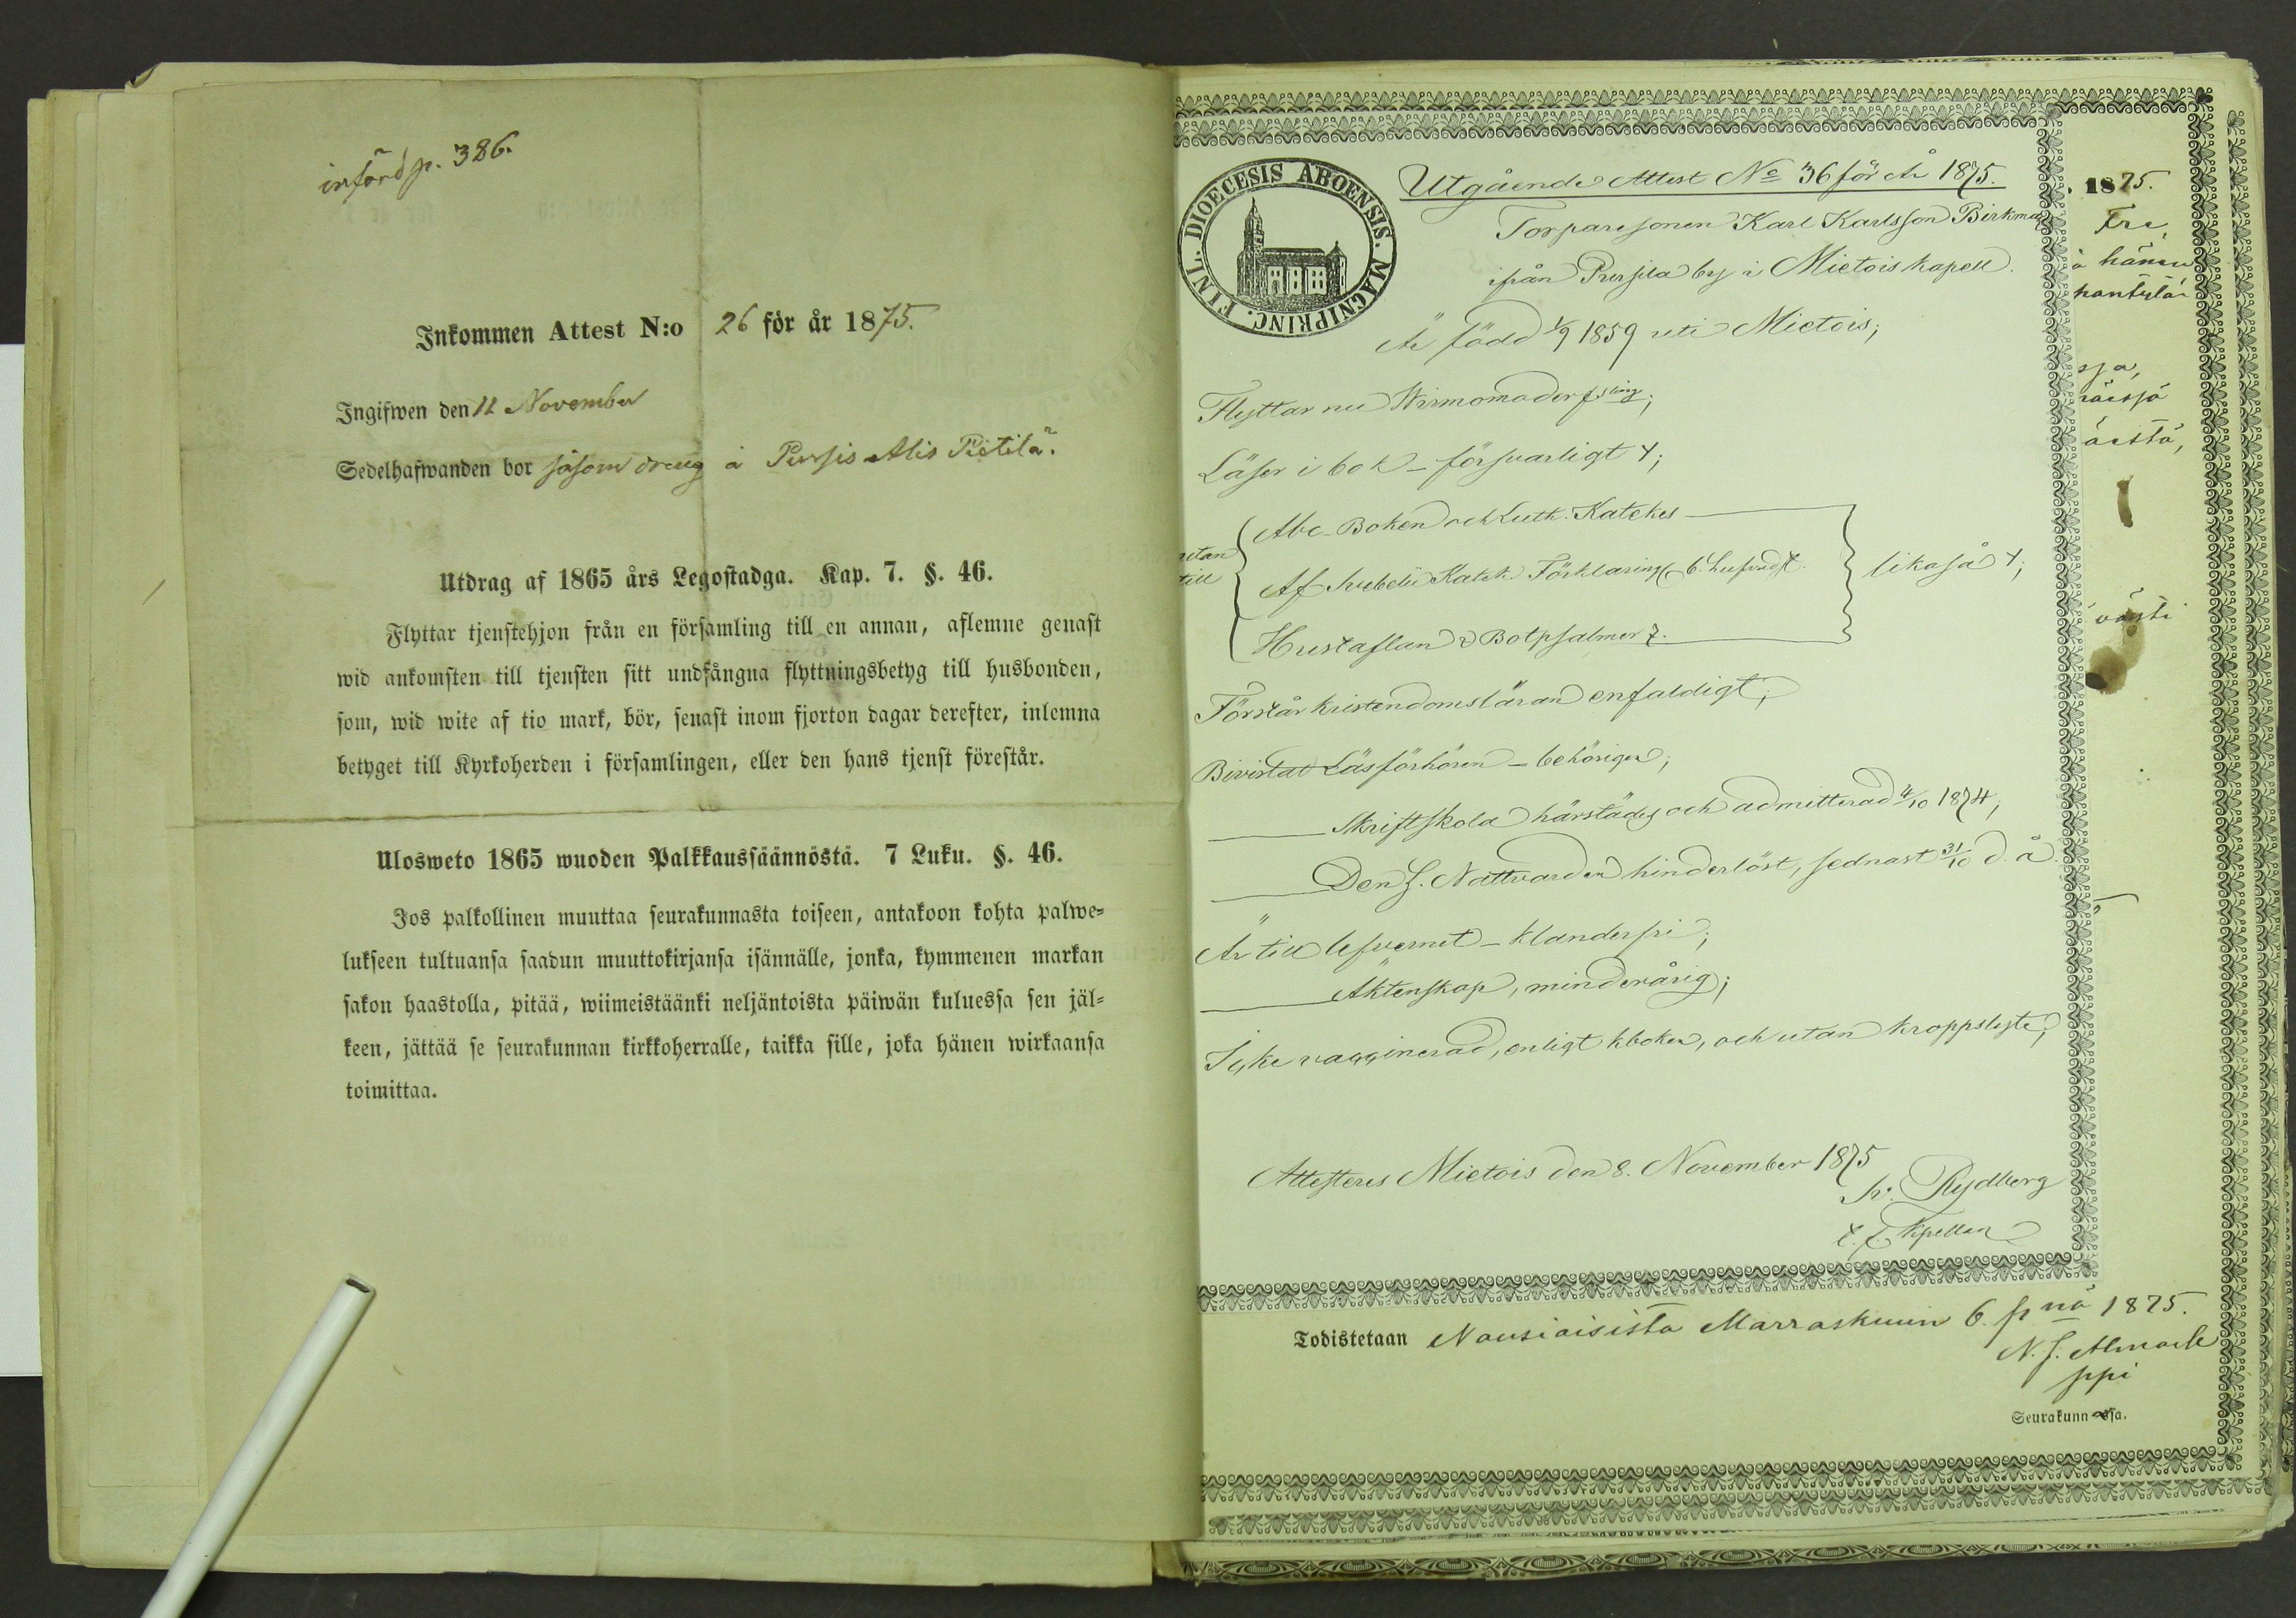 införd p. 386.
Inkommen Attest N:o 26 för år 1875.
Ingifwen den 11 November
Sedelhafwanden bor såsom dreng å Pursis Alis Pietilä.
Utdrag af 1865 års Legostadga. Kap. 7. §. 46.
Flyttar tjenstehjon från en församling till en annan, aflemne genast
wid ankomsten till tjensten sitt undfångna flyttningsbetyg till husbonden,
som, wid wite af tio mark, bör, senast inom fjorton dagar derefter, inlemna
betyget till Kyrkoherden i församlingen, eller den hans tjenst förestår.
Ulosweto 1865 wuoden Palkkaussäännöstä. 7 Luku. §. 46.
Jos palkollinen muuttaa seurakunnasta toiseen, antakoon kohta palwe=
lukseen tultuansa saadun muuttokirjansa isännälle, jonka, kymmenen markan
sakon haastolla, pitää, wiimeistäänki neljäntoista päiwän kuluessa sen jäl=
keen, jättää se seurakunnan kirkkoherralle, taikka sille, joka hänen wirkaansa
toimittaa.
DIOECESIS ABOENSIS. MAGNIPRINC. FINL.
Utgående Attest No 36 för År 1875.
Torparesonen Karl Karlsson Birkman
ifrån Pursila by i Mietois kapell.
Är född 1/9 1859 uti Mietois;
Flyttar nu Wirmo moderfsling;
Läser i bok - försvarligt +;
utan till
Abc-Boken och Luth. Katekes
Af Svebelii Katek. Förklaring 6 hufvudst.
likaså +;
Hustaflan & Botpsalmer 7.
Förstår kristendomsläran enfaldigt;
Bivistat Läsförhören - behörigen;
Skriftskola härstädes och admitterad 4/10 1874;
Den H. Nattvarden hinderlöst, sednast 31/10 d. å.
Är till lefvernet - klanderfri;
Äktenskap, minderårig;
Icke vaccinerad, enligt kboken, och utan kroppslyte;
Attesteras Mietois den 8. November 1875
Fr. Rydberg
t. f. Kpellan
1875.
hänen
västi
Todistetaan Nousiaisista Marraskuun 6. p nä 1875.
ppi
Seurakunnassa.